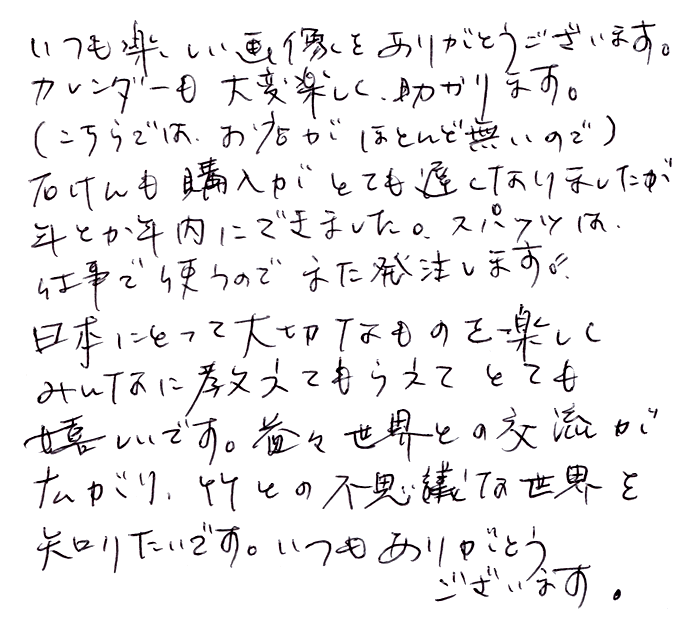 いつも楽しい画像をありがとうございます。
カレンダーも大変楽しく、助かります。
(こちらでは、お店がほとんど無いので)
石けんも購入がとても遅くなりましたが
年とか年内にできました。スパッツは、
仕事で使うのでまた発注します。
日本にとって大切なものを楽しく
みんなに教えてもらえてとても
嬉しいです。益々世界との交流が
広がり、竹との不思議な世界を
知りたいです。いつもありがとう
ございます。